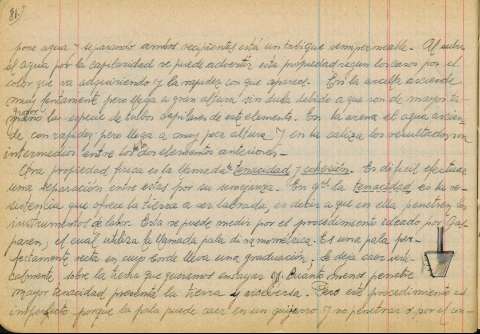 81.)
pone agua y separando ambos recipientes está un tabique semipermeable. Al subir
el agua por la capilaridad se puede advertir esta propiedad segun los casos por el
color que va adquiriendo y la rapidez con que aparece. En la arcilla asciende
muy lentamente pero llega a gran altura sin duda debido a que son de mayor ta-
maño la especie de tubos capilares de este elemento. En la arena el agua ascien-
de con rapidez pero llega a muy poca altura y en la caliza los resultados son
intermedios entre los dos elementos anteriores.
Otra propiedad fisica es la llamada tenacidad y cohesión. Es dificil efectuar
una separación entre estas por su semejanza. En gral la tenacidad es la re-
sistencia que ofrece la tierra a ser labrada, es decir a que en ella penetren los
instrumentos de labor. Esta se puede medir por el procedimiento ideado por Gas-
parin, el cual utiliza la llamada pala dinamometrica. Es una pala per-
fectamente recta en cuyo borde lleva una graduación; se deja caer verti-
calmente sobre la tierra que queremos ensayar y cuanto menos penetre
mayor tenacidad presenta la tierra y viceversa. Pero este procedimiento es
imperfecto porque la pala puede caer en un guijarro y no penetrar o, por el con-